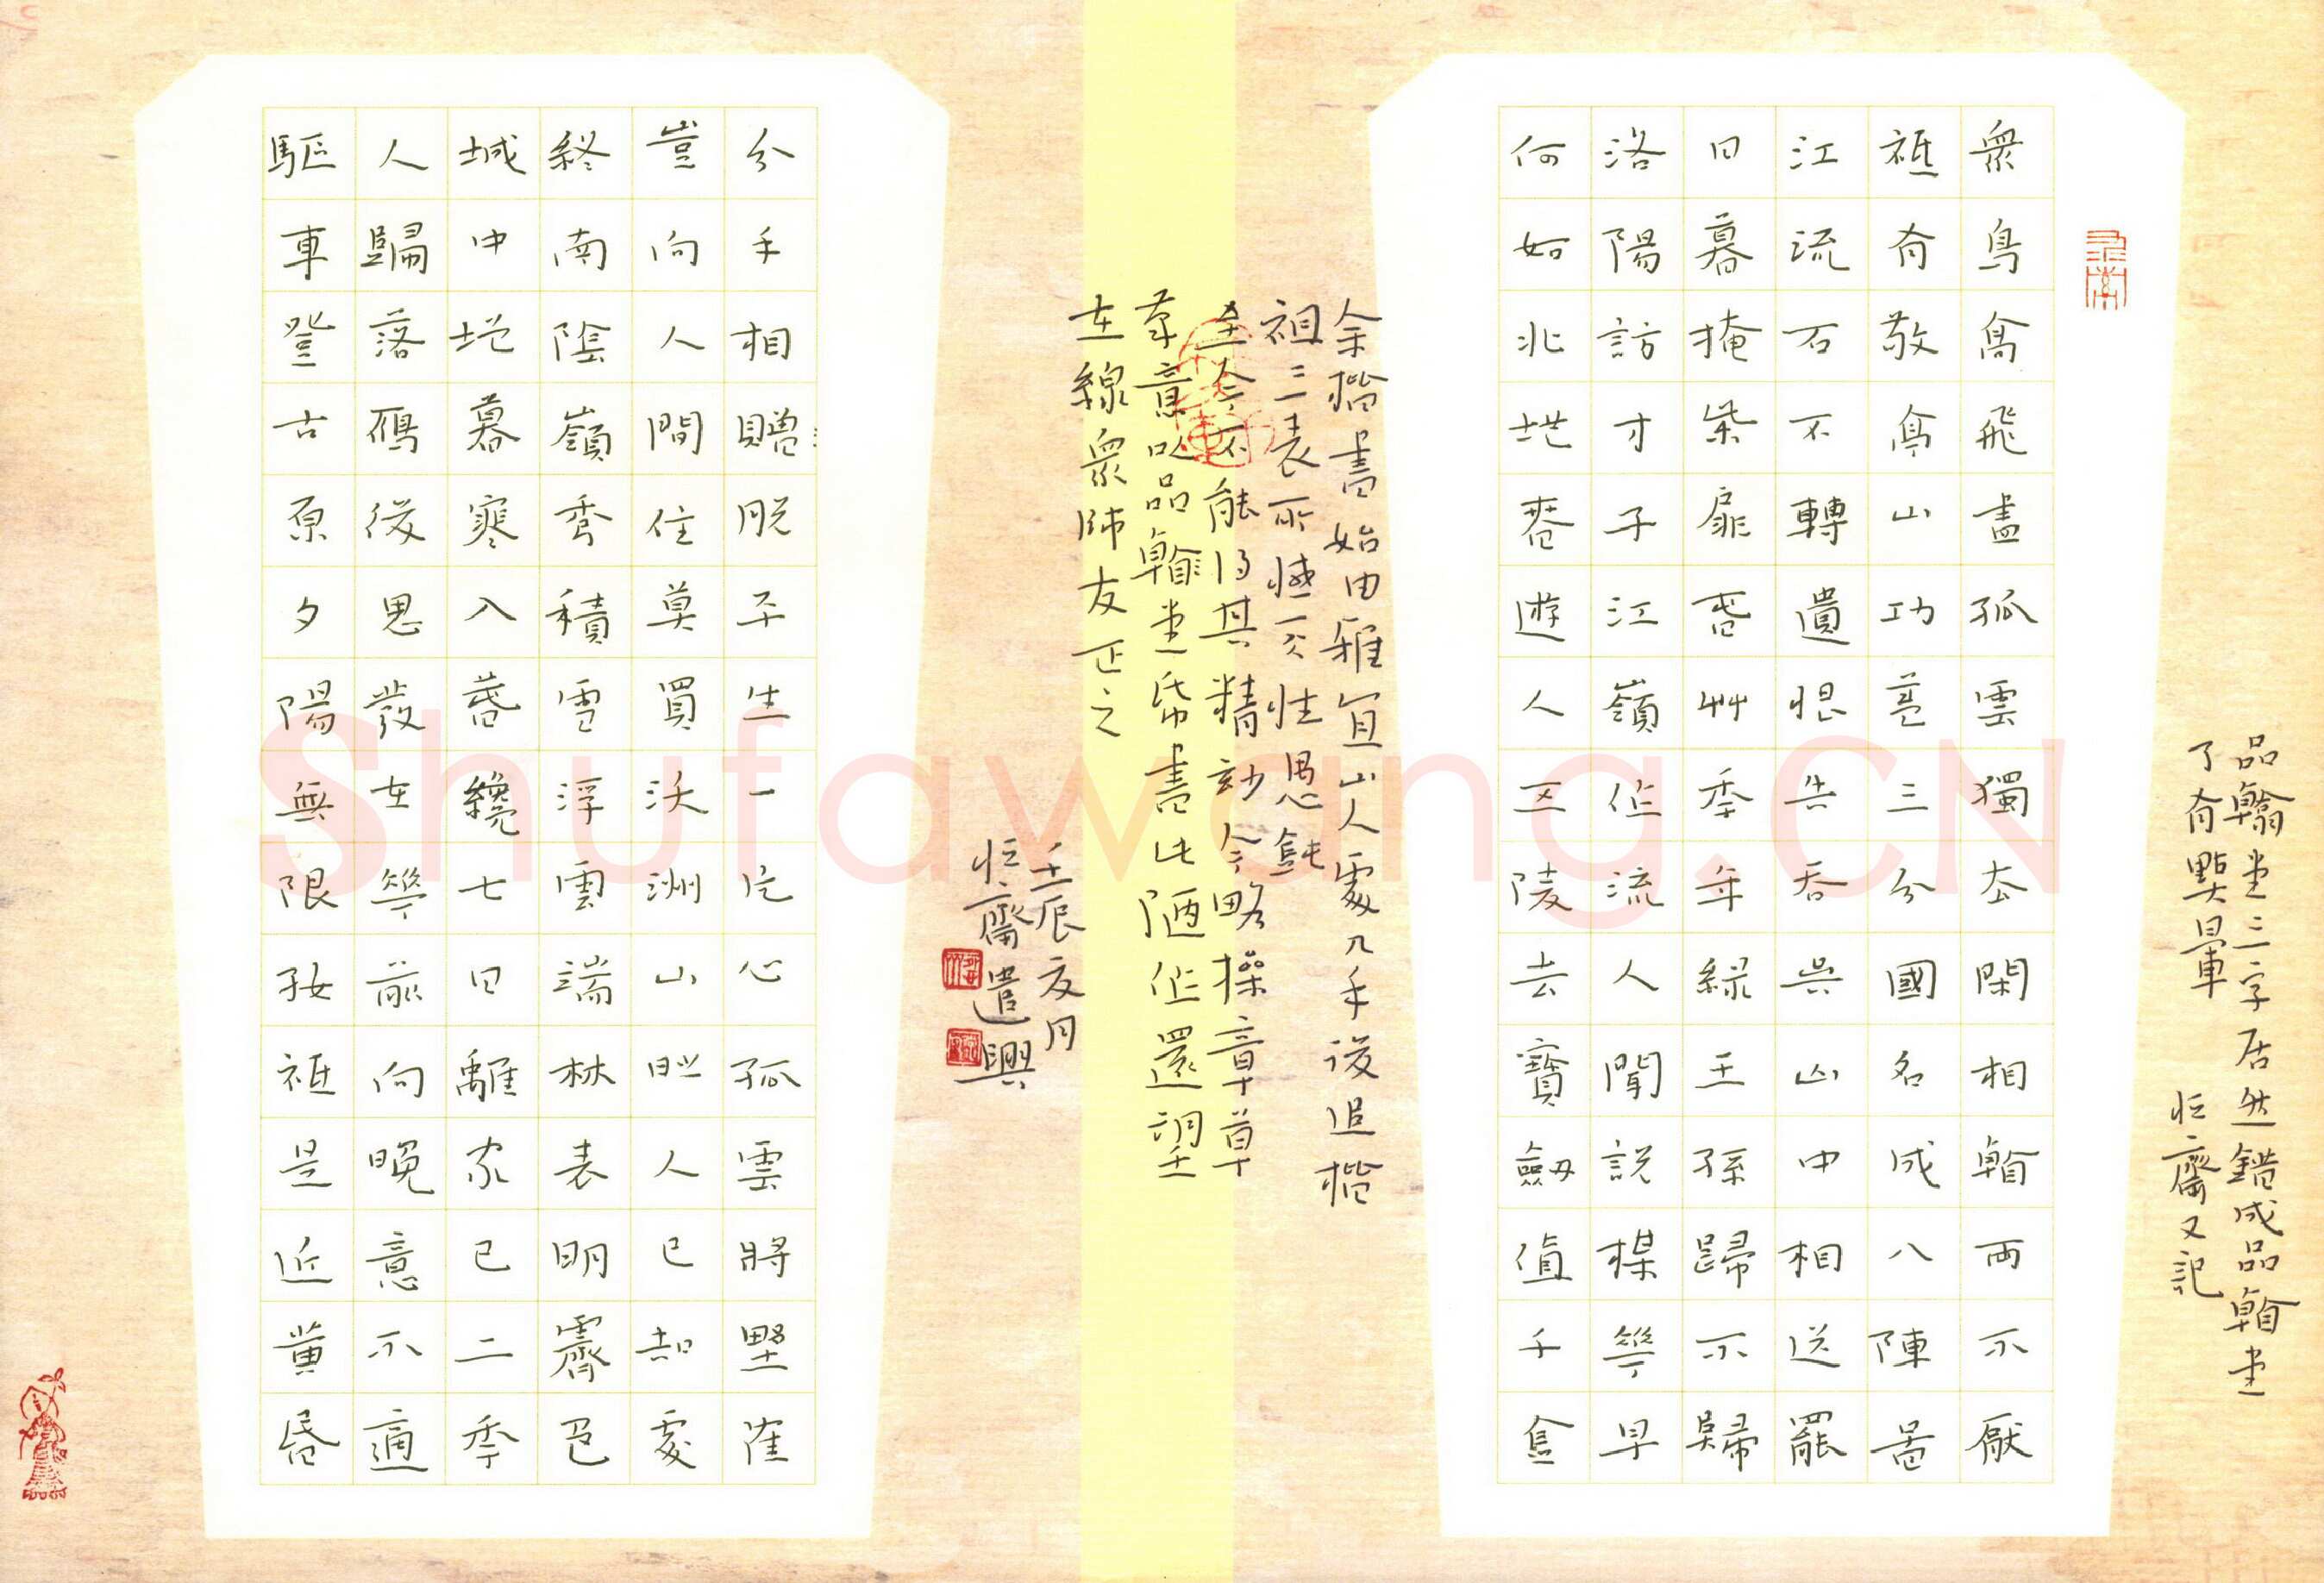 品翰堂三字居然錯成品翰堂
了有點暈
恒齋又記
衆鳥高飛盡孤雲獨去閑相看兩不厭
祗有敬亭山功蓋三分國名成八陣圖
江流石不轉遺恨失吞吳山中相送罷
日暮掩柴扉春草年年綠王孫歸不歸
洛陽訪才子江嶺作流人聞說梅花早
何如北地春遊人五陵去寶劍值千金
余楷書始由雅宜山人處入手後追楷
祖三表所憾天性愚鈍
至今不能得其精妙今略摻章草
筆意以品翰堂紙書此陋作還望
在線衆師友正之
壬辰夏月
恒齋遣興
分手相贈脫平生一片心孤雲將野寉
豈向人間住莫買沃洲山時人已知處
終南陰嶺秀積雪浮雲端林表明霽色
城中地暮寒入春纔七日離家已二年
人歸落鴈後思發在花前向晚意不適
驅車登古原夕陽無限好祗是近黃昏
Shufawang.CN